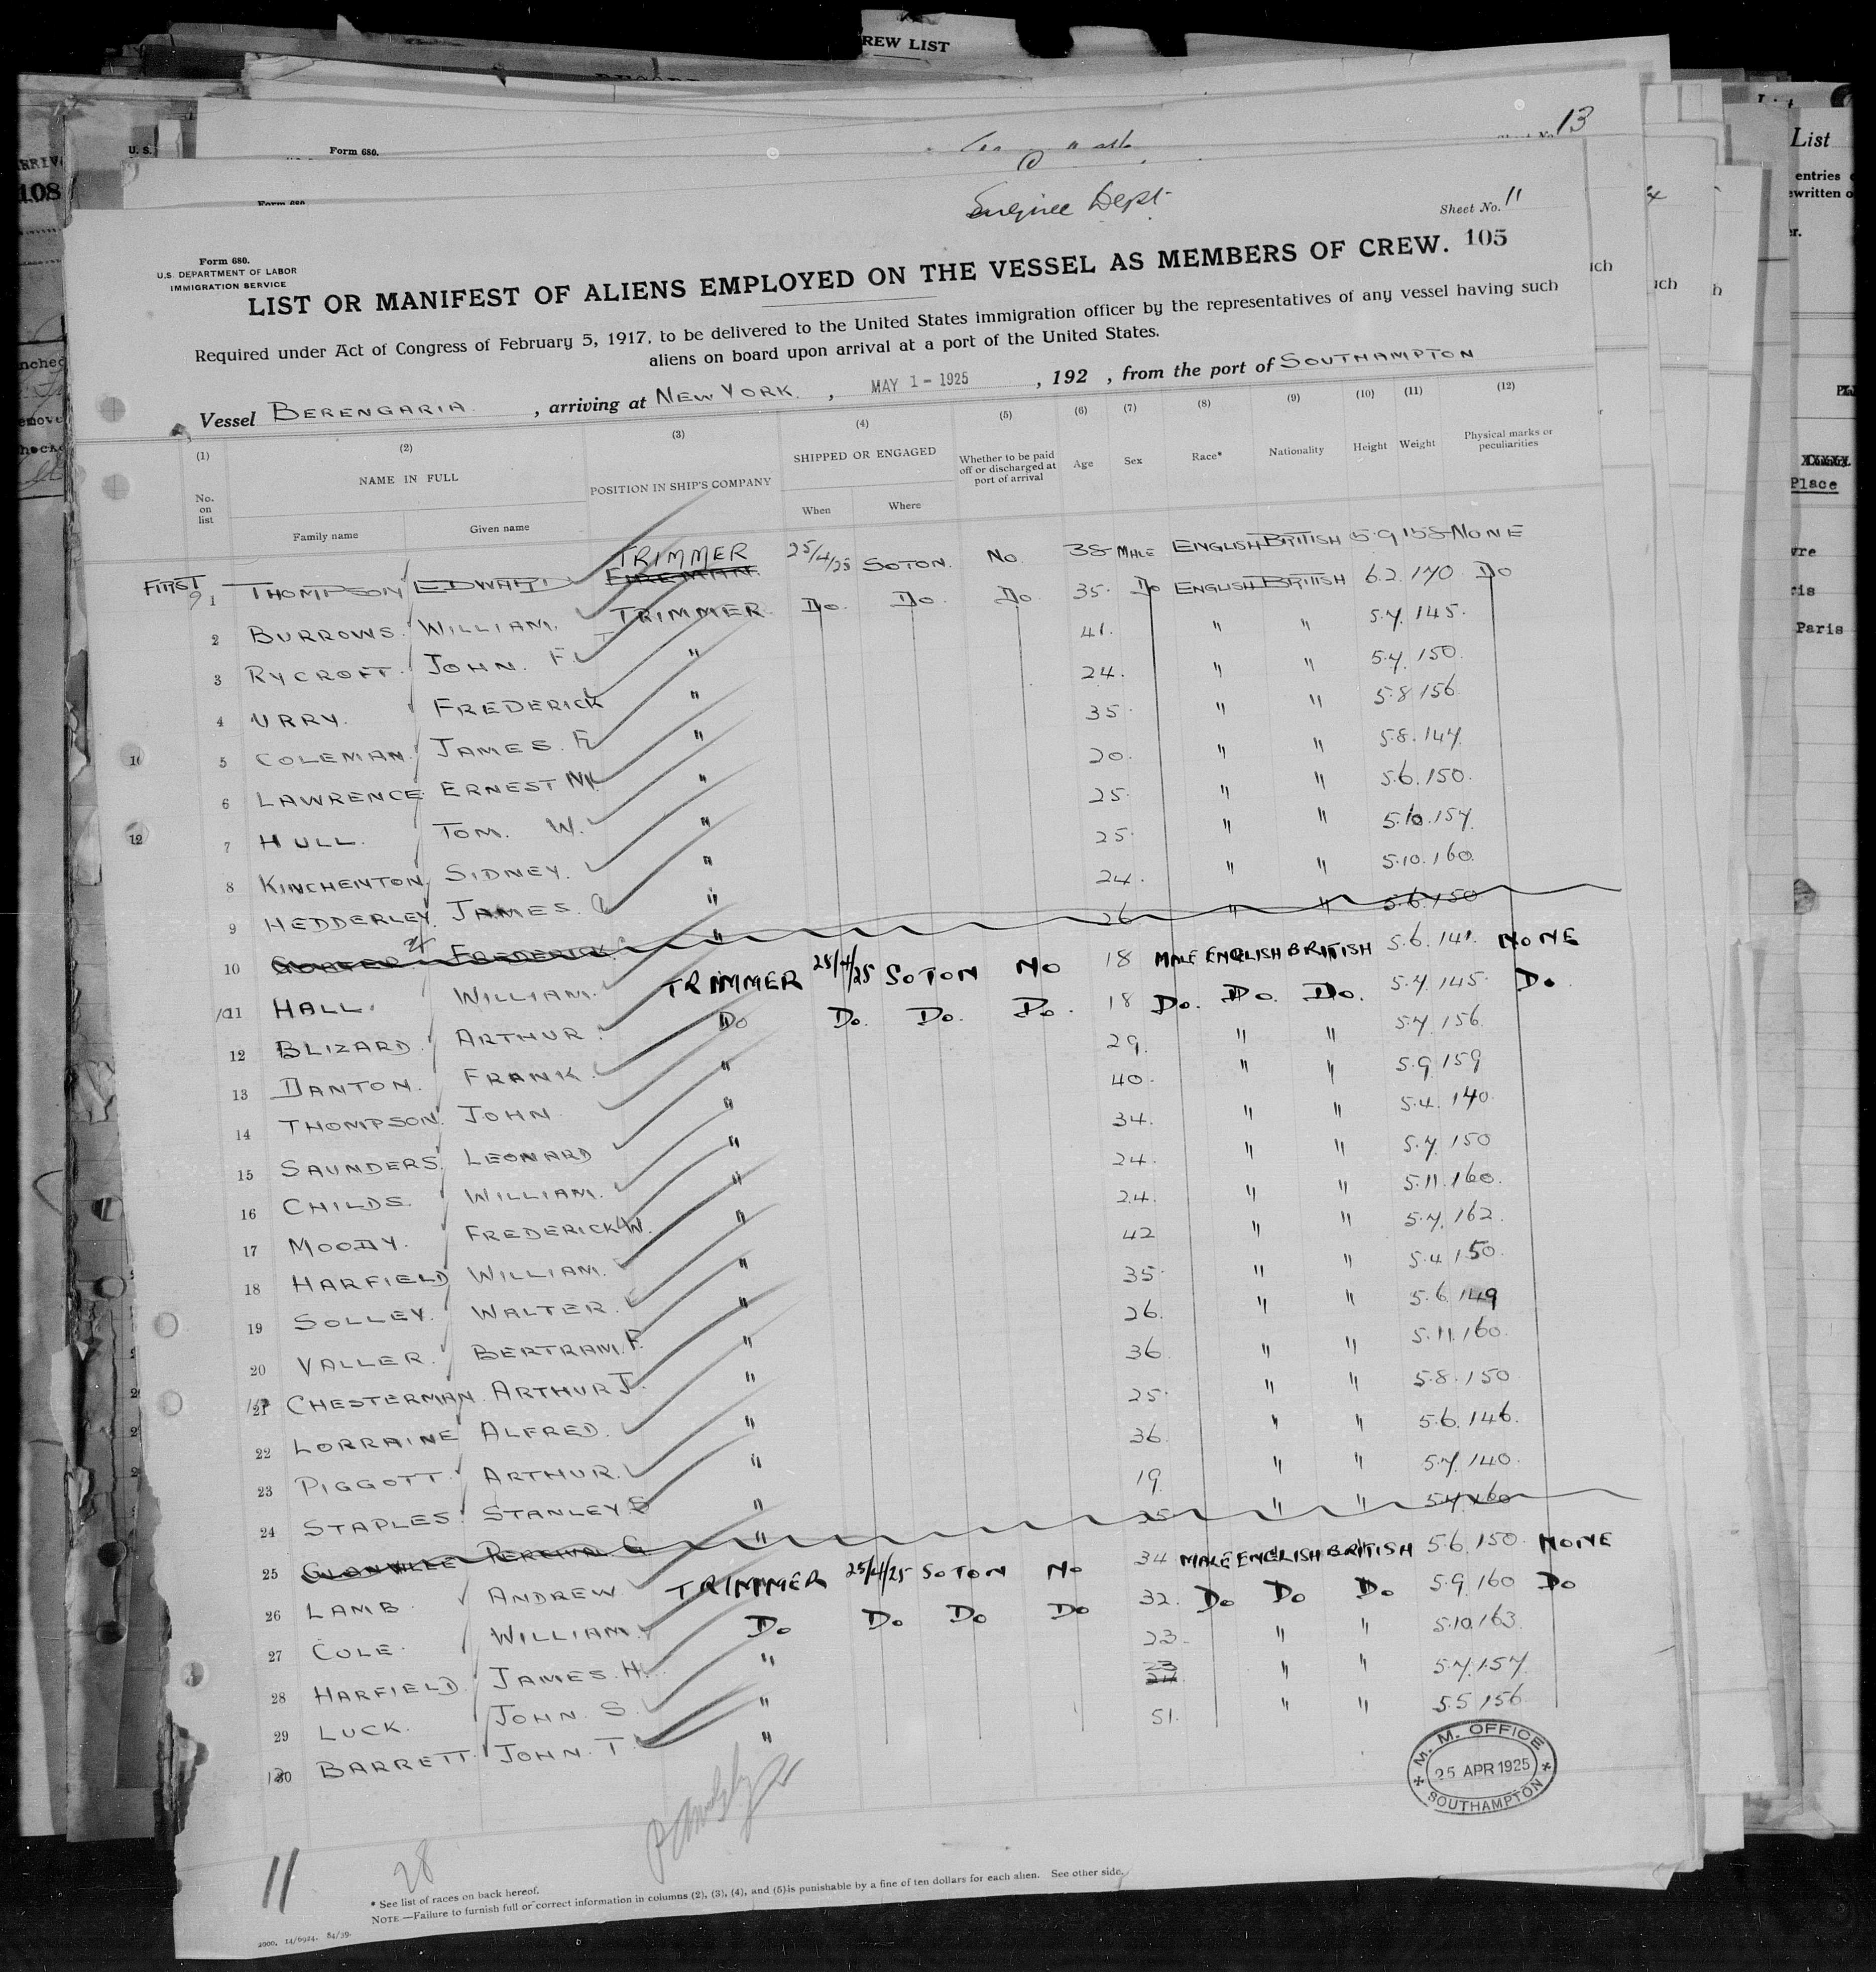 CREW LIST
Form 680.
Sheet No. 13
Engine Dept.
Sheet No. 11
105
Form 680.
U.S. DEPARTMENT OF LABOR
IMMIGRATION SERVICE
LIST OR MANIFEST OF ALIENS EMPLOYED ON THE VESSEL AS MEMBERS OF CREW.
Required under Act of Congress of February 5, 1917, to be delivered to the United States immigration officer by the representatives of any vessel having such
aliens on board upon arrival at a port of the United States.
Vessel BERENGARIA, arriving at NEW YORK, MAY 1 - 1925, 192 , from the port of SOUTHAMPTON
(1) (2) (3) (4) (5) (6) (7) (8) (9) (10) (11) (12)
No. on list NAME IN FULL POSITION IN SHIP'S COMPANY SHIPPED OR ENGAGED Whether to be paid off or discharged at port of arrival Age Sex Race* Nationality Height Weight Physical marks or peculiarities
Family name Given name When Where
FIRST
1 THOMPSON EDWARD TRIMMER FIREMAN. 25/4/25 SOTON. No. 38 MALE ENGLISH BRITISH 5.9 158 NONE
2 BURROWS. WILLIAM. TRIMMER Do. Do. Do. 35. Do ENGLISH BRITISH 6.2. 170 Do
3 RYCROFT. JOHN. F. " 41. " " 5.7. 145.
4 URRY. FREDERICK " 24. " " 5.7. 150.
5 COLEMAN. JAMES. F. " 35. " " 5.8 156
6 LAWRENCE ERNEST " 20. " " 5.8. 147.
7 HULL. TOM. W. " 25. " " 5.6. 150.
8 KINCHENTON SIDNEY. " 25. " " 5.10. 157.
9 HEDDERLEY. JAMES. " 24. " " 5.10. 160.
10 FREDERICK " 26 " " 5.6. 150
11 HALL. WILLIAM. TRIMMER 25/4/25 SOTON No 18 MALE ENGLISH BRITISH 5.6. 141. NONE
12 BLIZARD. ARTHUR. Do Do. Do. Do. 18 Do. Do. Do. 5.7. 145. Do.
13 DANTON. FRANK. " 29. " " 5.7. 156.
14 THOMPSON. JOHN " 40. " " 5.9. 159
15 SAUNDERS. LEONARD " 34. " " 5.4. 140.
16 CHILDS. WILLIAM. " 24. " " 5.7. 150
17 MOODY. FREDERICK W. " 24. " " 5.11. 160.
18 HARFIELD WILLIAM. " 42 " " 5.7. 162.
19 SOLLEY. WALTER. " 35. " " 5.4 150.
20 VALLER. BERTRAM. F. " 26. " " 5.6. 149
21 CHESTERMAN. ARTHUR J. " 36. " " 5.11. 160.
22 LORRAINE ALFRED. " 25. " " 5.8. 150
23 PIGGOTT. ARTHUR. " 36. " " 5.6. 146.
24 STAPLES. STANLEY S " 19. " " 5.7. 140.
25 GLANVILLE PERCIVAL G. " 35 " " 5.7. 160
26 LAMB. ANDREW TRIMMER 25/4/25 SOTON No 34 MALE ENGLISH BRITISH 5.6. 150. NONE
27 COLE. WILLIAM. Do Do Do Do 32. Do Do Do 5.9. 160 Do
28 HARFIELD. JAMES. H. " 23. " " 5.10. 163.
29 LUCK. JOHN. S. " 23 24 " " 5.7. 157.
30 BARRETT. JOHN. T. " 51. " " 5.5 156.
M. M. OFFICE
25 APR 1925
SOUTHAMPTON
11
28
* See list of races on back hereof.
NOTE.—Failure to furnish full or correct information in columns (2), (3), (4), and (5) is punishable by a fine of ten dollars for each alien. See other side.
2000. 14/6924. 84/39.